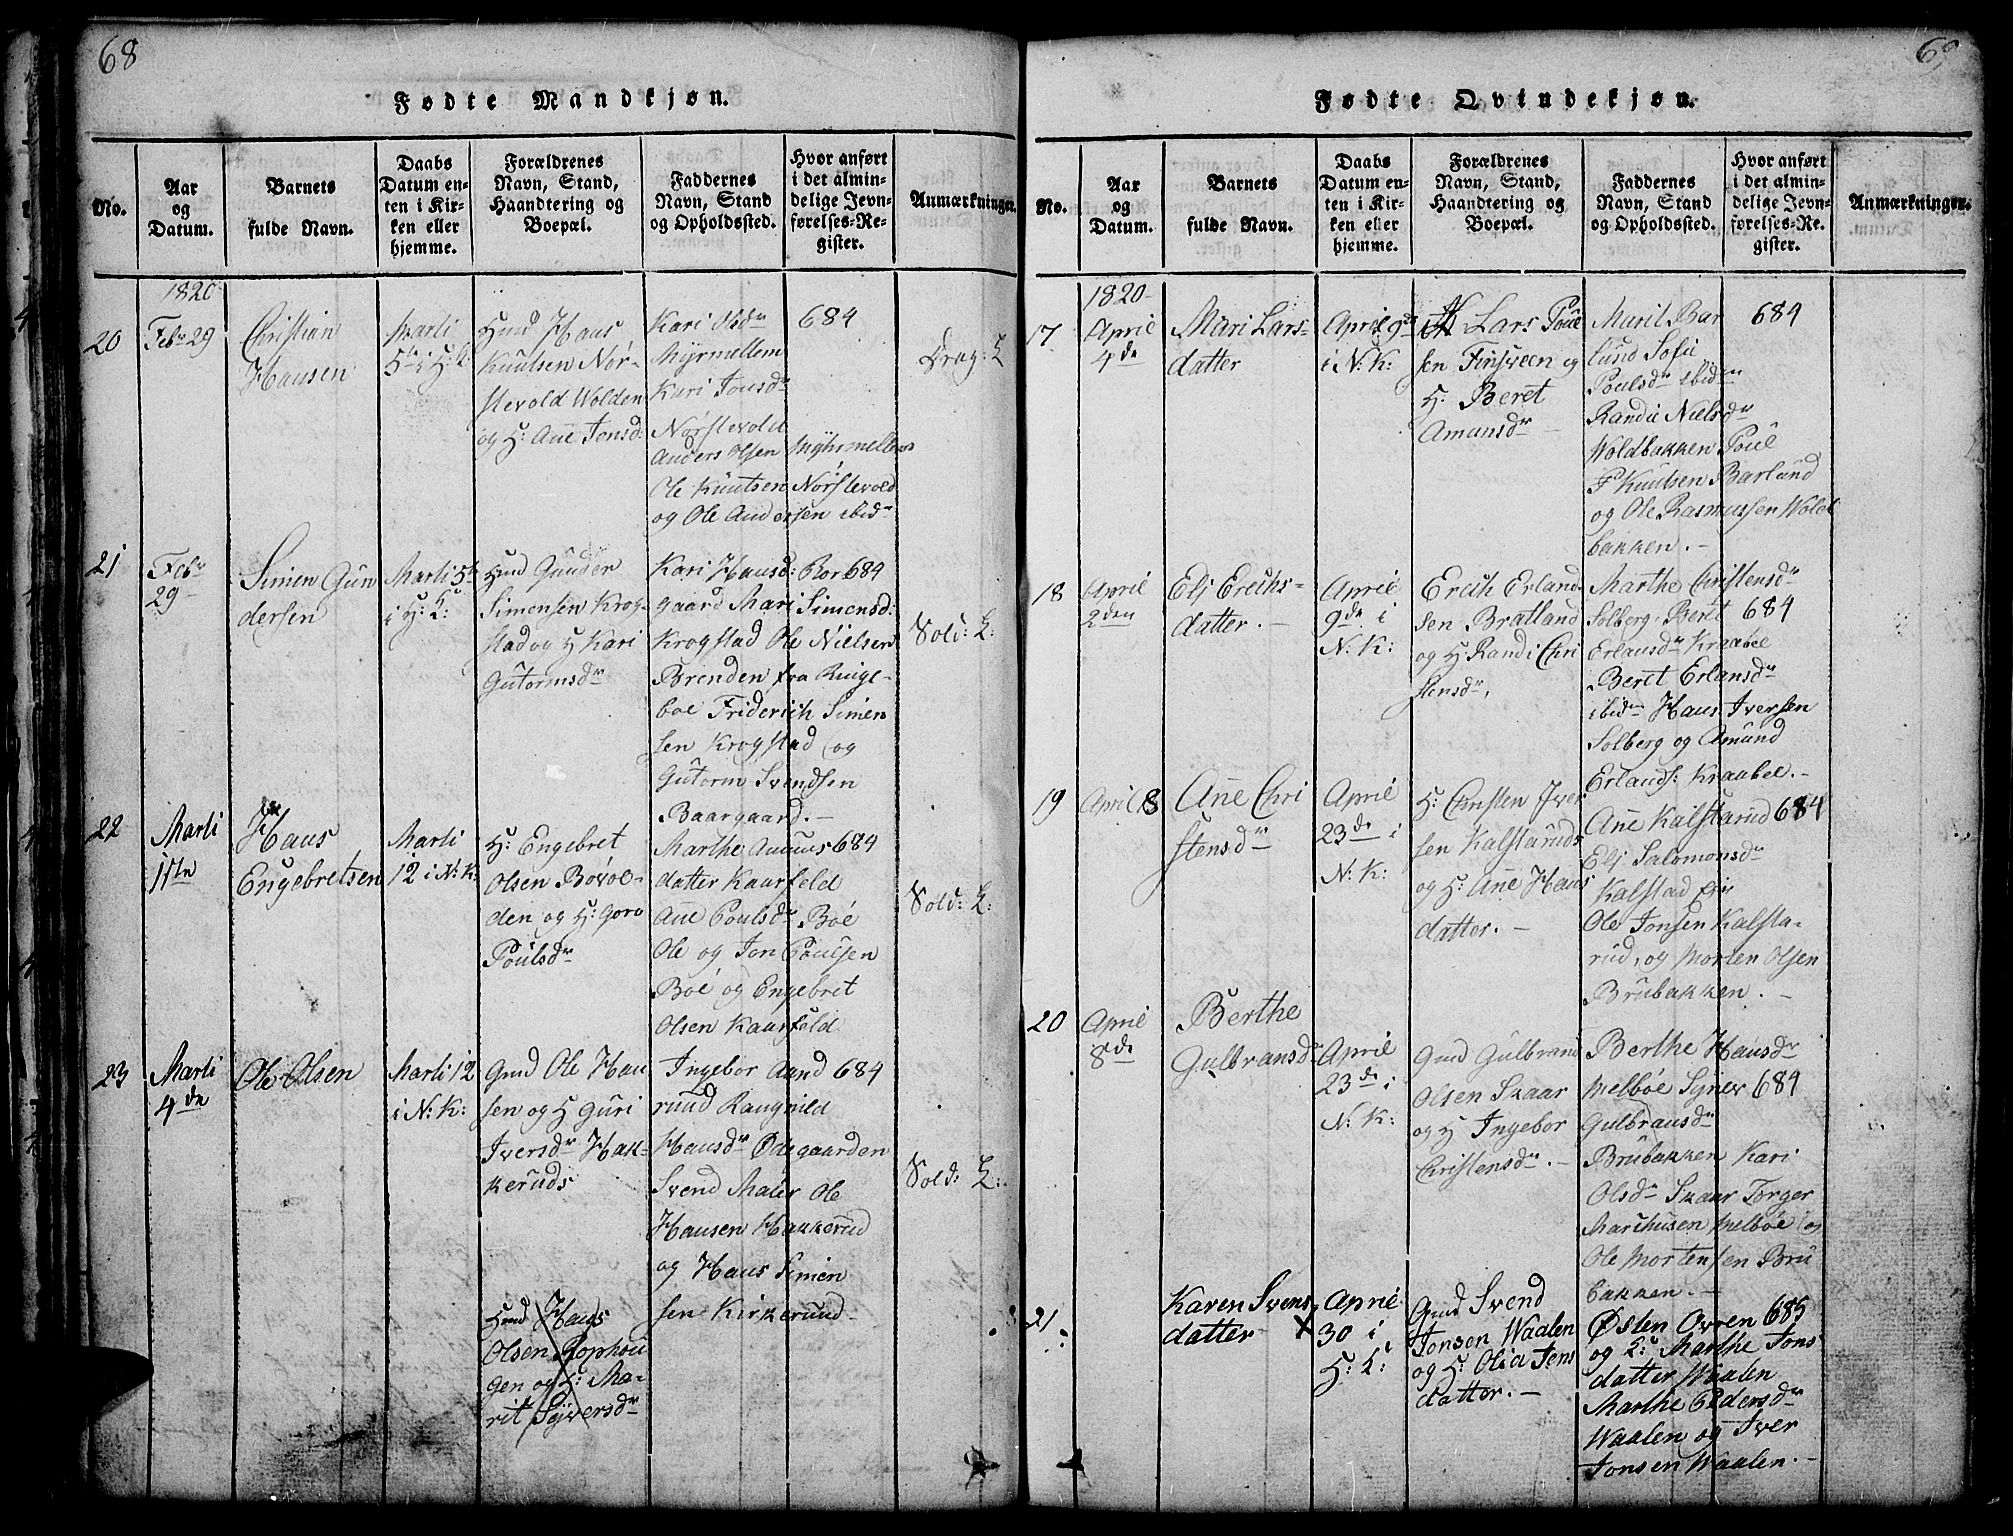 68
Fødte Mandkjøn.
No.
Aar
og
Datum.
Barnets
fulde Navn.
Daabs
Datum en-
ten i Kir-
ken eller
hjemme.
Forældrenes
Navn, Stand,
Haandtering og
Boepæl.
Faddernes
Navn, Stand
og Opholdssted.
Hvor anført
i det almin-
delige Jevn-
førelses-Re-
gister.
Anmærkninger.
1820
20
Febr 29
Christian
Hansen
Marti
5te i H: K:
Hmd Hans
Knutsen Nör-
stevold Wolden
og H: Ane Jonsd:
Kari Olsdr
Myrmellem
Kari Jonsdr
Nörstevold
Anders Olsen Myhrmellem
Ole Knutsen Nörstevold
og Ole Andersen ibidm
684
Drag: L
21
Febr
29
Simen Gun
dersen
Marti 5te
i H: K:
Hmd Gunder
Simensen Krog-
stad og H Kari
Gutormsdr
Kari Hansd: Bor 684
gaard Mari Simensd:
Krogstad Ole Nielsen
Brenden fra Ringe-
boe Friderich Simen
sen Krogstad og
Gutorm Svendsen
Baargaard. -
Sold: L:
22
Marti
11te
Hans
Engebretsen
Marti
12 i N: K:
H: Engebret
Olsen Bövol-
den og H: Goro
Poulsdr
Marthe Amuns 684
datter Kaarfeld
Ane Poulsdr Böe
Ole og Jon Poulsen
Böe og Engebret
Olsen Kaarfeld
Sold: L:
23
Marti
4de
Ole Olsen
Marti 12
i N: K:
Gmd Ole Han
sen og H Guri
Iversdr Hak-
keruds
Ingebor Aand 684
ruud Rangnild
Hansdr Ødegaarden
Svend Maler Ole
Hansen Hakkerud
og Hans Simen
sen Kirkeruud
Sold: L:
Hmd Hans
Olsen Rophou
gen og H: Ma-
rit Syversdr
69
Fødte Qvindekjøn.
No.
Aar
og
Datum.
Barnets
fulde Navn.
Daabs
Datum en-
ten i Kir-
ken eller
hjemme.
Forældrenes
Navn, Stand,
Haandtering og
Boepæl.
Faddernes
Navn, Stand
og Opholdssted.
Hvor anført
i det almin-
delige Jevn-
førelses-Re-
gister.
Anmærkninger.
1820
17
April
4de
Mari Lars-
datter
April 9de
i N: K:
H Lars Poul
sen Finsveen og
H: Beret
Amunsdr
Marit Bar 684
lund Sofie
Poulsdr ibidm
Randi Nielsdr
Woldbakken Poul
P Knutsen Barlund
og Ole Rasmussen Wold
bakken. -
18
April
2den
Eli Erichs-
datter. -
April
9de i
N: K:
Erich Erland
sen Bratland
og H: Randi Chri
stensdr,
Marthe Christensdr
Solberg, Beret 684
Erlansdr Kraabel
Beret Erlansdr
ibidm Hans Iversen
Solberg og Amund
Erlands: Kraabel. -
19
April 8
Ane Chri
stensdr
April
23de i
N: K:
H: Christen Iver
sen Kalstaruds
og H: Ane Hans
datter. -
Ane Kalstarud 684
Eli Salomonsdr
Kalstad Eier
Ole Jonsen Kalsta-
rud, og Morten Olsen
Brubakken. -
20
April
8de
Berthe
Gulbransdr
April
23de i
N: K:
Gmd Gulbrand
Olsen Skaar
og H Ingebor
Christensdr. -
Berthe Hansdr
Melböe Synev 684
Gulbransdr
Brubakken Kari
Olsdr Skaar Torger
Marchusen Melböe og
Ole Mortensen Bru
bakken. -
21.
Karen Svens
datter X
April
30 i
H: K:
Gmd Svend
Jonsen Waalen
og H: Olea Jens
datter. -
Østen Ovren 685
og L: Marthe Jons
datter Waalen
Marthe Pedersdr
Waalen og Iver
Jonsen Waalen. -